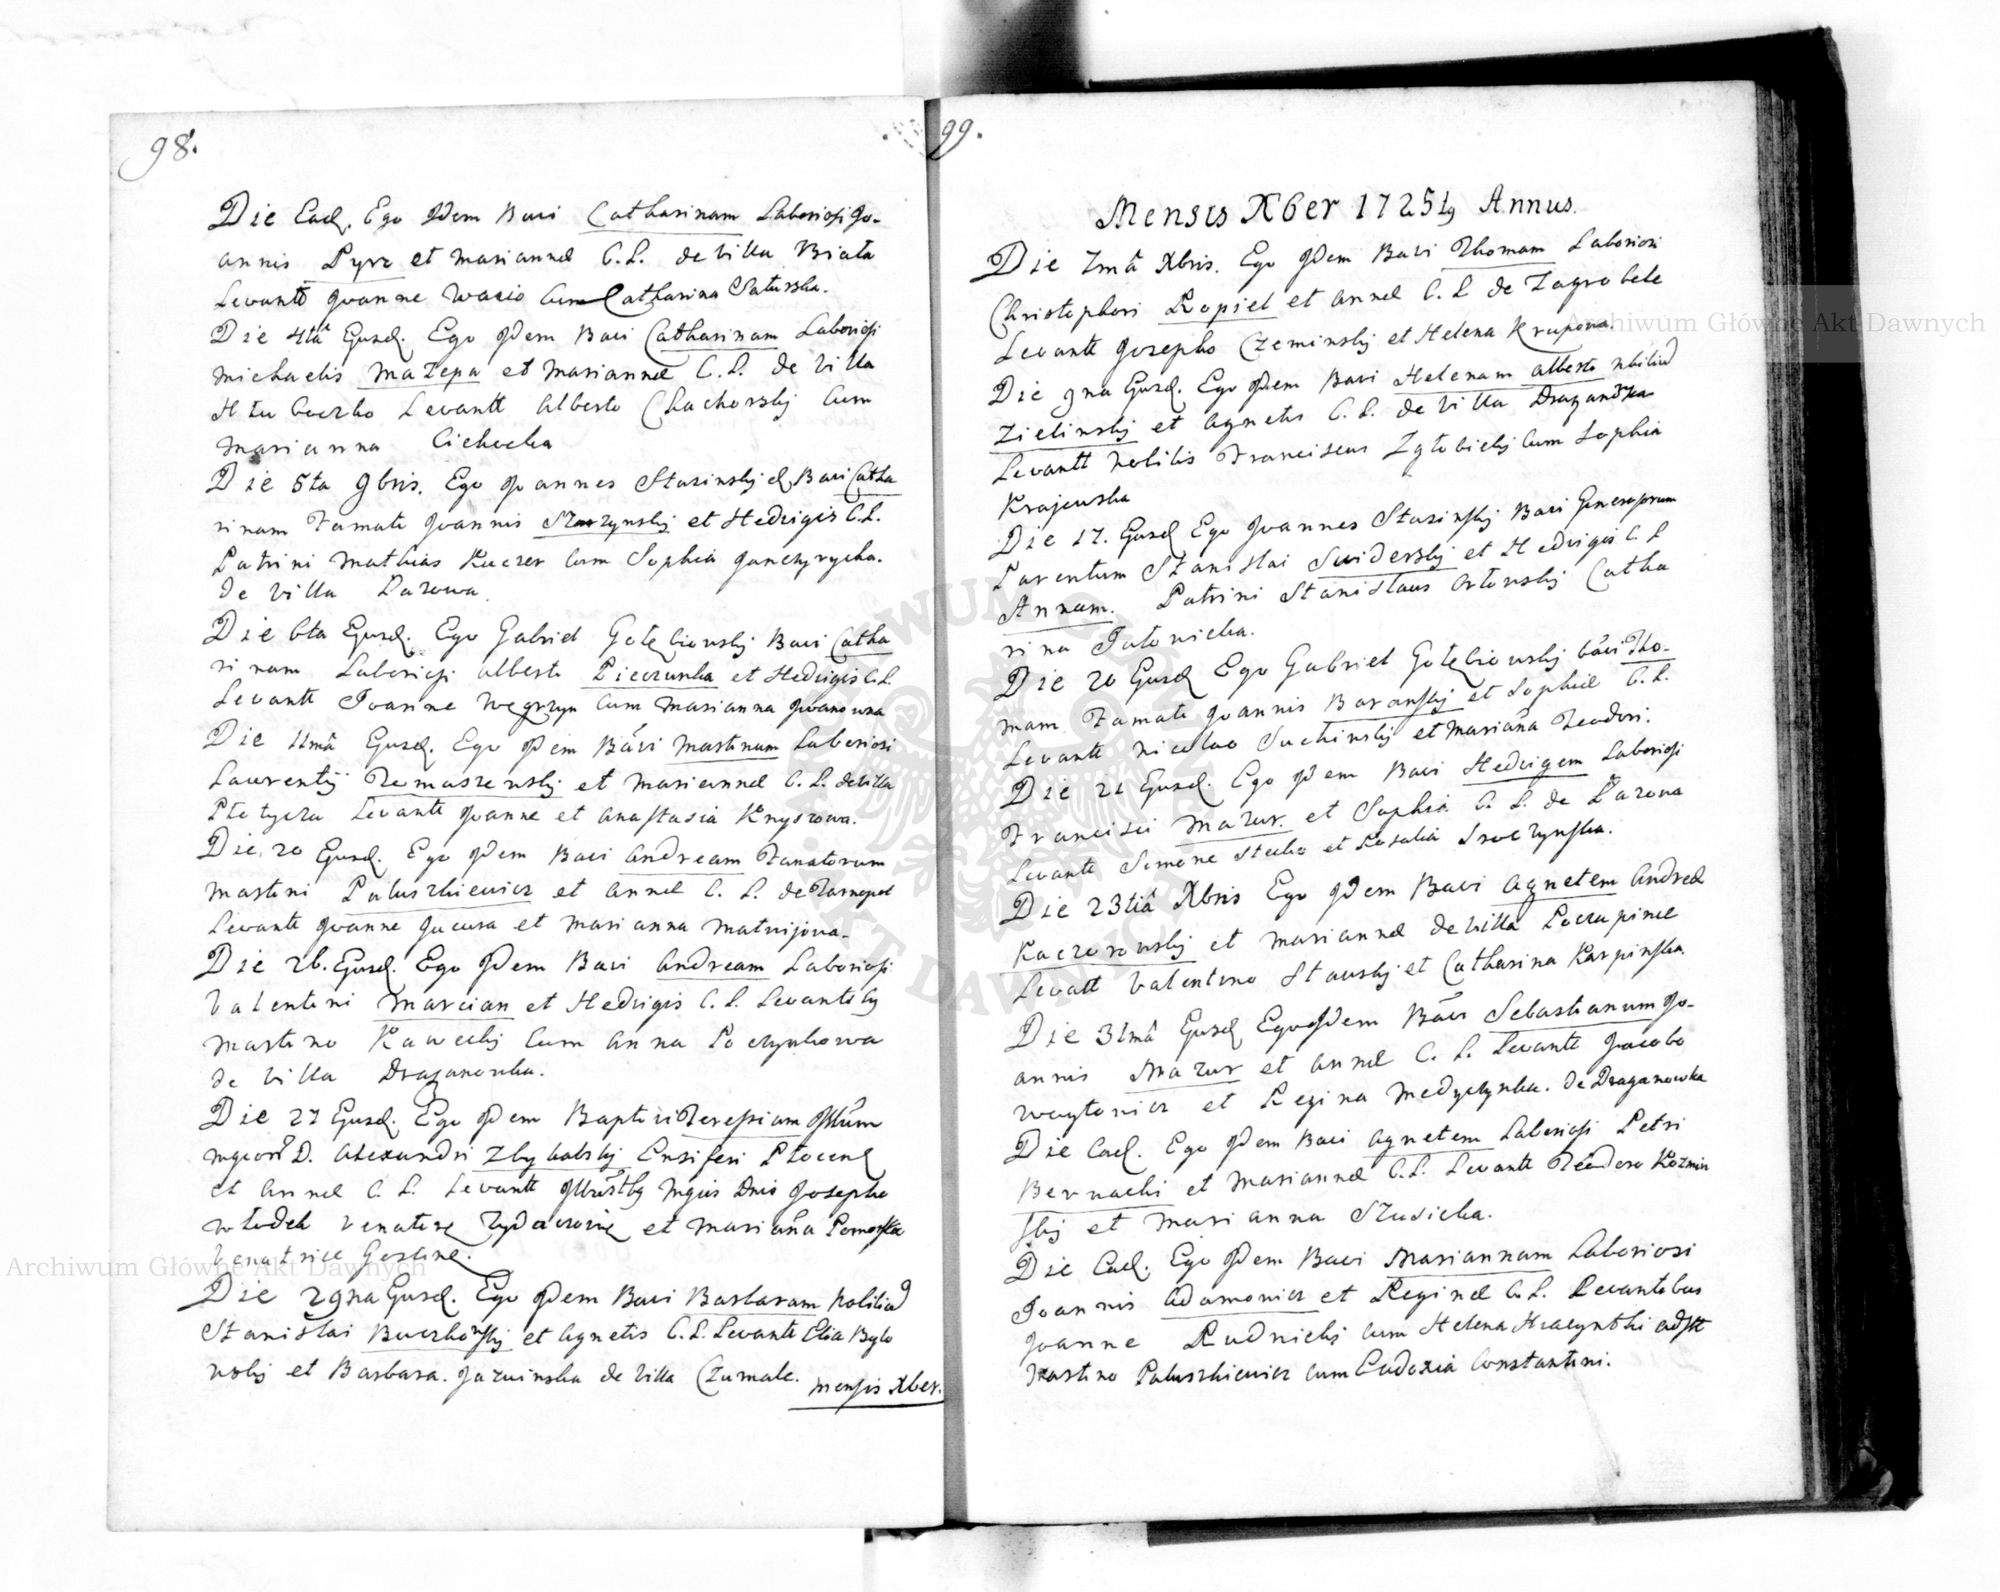 98.
Die Ead. Ego Idem Baci Catharinam Laboriosi Jo-
annis Pyrz et Mariannæ C. L. de Villa Biała
Levante Joanne Wacio Cum Catharina Saturska.
Die 4tâ Eiusd. Ego Idem Baci Catharinam Laboriosi
Michaelis Mazepa et Mariannæ C. L. de Villa
Hłuboczko Levantt Alberto Chachorskij Cum
Marianna Cichocka
Die 5ta 9bris. Ego Joannes Stasinskij Baci Catha
rinam Famati Joannis et Hedvigis C.L.
Patrini Mathias Kuczer Cum Sophia
de Villa Łazowa.
Die 6ta Eiusd. Ego Gabriel Gołębiowskij Baci Catha
rinam Laboriosi Alberti Pieczunka et Hedvigis C.L.
Levantt Ivasine Węgrzyn Cum Marianna Iwanowna
Die 11mâ Eiusd. Ego Idem Bâci Martinum Laboriosi
Laurentij Tomaszewskij et Mariannæ C. L. de Villa
Płotycza Levante Joanne et Anastasia Knyszowa.
Die 20 Eiusd. Ego Idem Baci Andream Famatorum
Martini Paluszkiewicz et Annæ C. L. de Tarnopol
Levante Joanne Jucura et Marianna Matwijowa.
Die 26. Eiusd. Ego Idem Baci Andream Laboriosi
Valentini Marcian et Hedvigis C. L. Levantibg
Martino Kaweckij Cum Anna Poczynkowa
de Villa Draganowka.
Die 27 Eiusd. Ego Idem Baptizi Teressiam Illûm
Mgcor D. Alexandri Zbykalskij Ensiferi Płocens
et Annæ C. L. Levantt Mgcis Dnis Josepho
Włodek Venatore Zydaczovie et Mariaña Pomorska
Venatrice
Die 29na Eiusd. Ego Idem Baci Barbaram Nobiliu
Stanislai Buczkowskij et Agnetis C. L. Levante Elia Byko
wskij et Barbara. Jazwinska de Villa Czumale.
Mensis Xber.
99.
Mensis Xber 1725tg Annus.
Die 7mâ Xbris. Ego Idem Baci Thomam Laboriosi
Christophori Kopiel et Annæ C. L de Zagrobele
Levantt Josepho Czeminskij et Helena Krupowa.
Die 9na Eiusd. Ego Idem Baci Helenam Alberto Nbiliu
Zielinskij et Agnetis C. L. de Villa Draganowka
Levantt Nobilis Franciscus Zgłobickij Cum Sophia
Krajewska
Die 17. Eiusd Ego Joannes Stasinskij Baci Generosorum
Parentum Stanislai Swiderskij et Hedvigis C L
Annam. Patrini Stanislaus Orłowskij Catha
rina
Die 20 Eiusd Ego Gabriel Gołębiowskij bâci Tho-
mam Famati Joannis Baranskij et Sophiæ C. L.
Levantt Nicolao Suchinskij et Mariaña Teodori.
Die 21 Eiusd. Ego Idem Baci Hedvigem Laboriosi
Francisci Mazur. et Sophia C. L. de Łazowa
Levante Simone Stecko et Rosalia Sroczynska.
Die 23tiâ Xbris Ego Idem Baci Agnetem Andreæ
Kaczorowskij et Mariannæ de Villa Poczapince
Levatt Valentino Stawskij et Catharina Karpinska.
Die 31mâ Eiusd Ego Idem Bâci Sebastianum Jo-
annis Mazur et Annæ C. L. Levantt Jacobo
Woytowicz et Regina Medyczynka. de Draganowka
Die Ead. Ego Idem Baci Agnetem Laboriosi Petri
Bernacki et Mariannæ C.L. Levantt Teodoro Kozmin
skij et Marianna Szusicka.
Die Ead. Ego Idem Baci Mariannam Laboriosi
Joannis Adamowicz et Reginæ C. L. Levantibus
Joanne Rudnickij cum Helena Hiacynthi adstt
Martino Paluszkiewicz cum Eudoxia Constantini.
Archiwum Główne Akt Dawnych
Archiwum Główne Akt Dawnych
ARCHIWUM GŁÓWNE AKT DAWNYCH